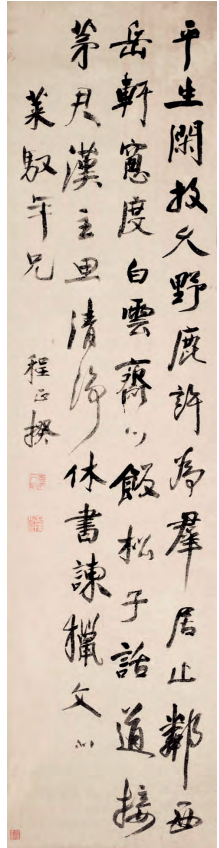 平生閑放久野鹿許為羣居止鄰西
岳軒窓度白雲齋心飯松子話道接
茅君漢主思清淨休書諫獵文
萊馭年兄
程正揆